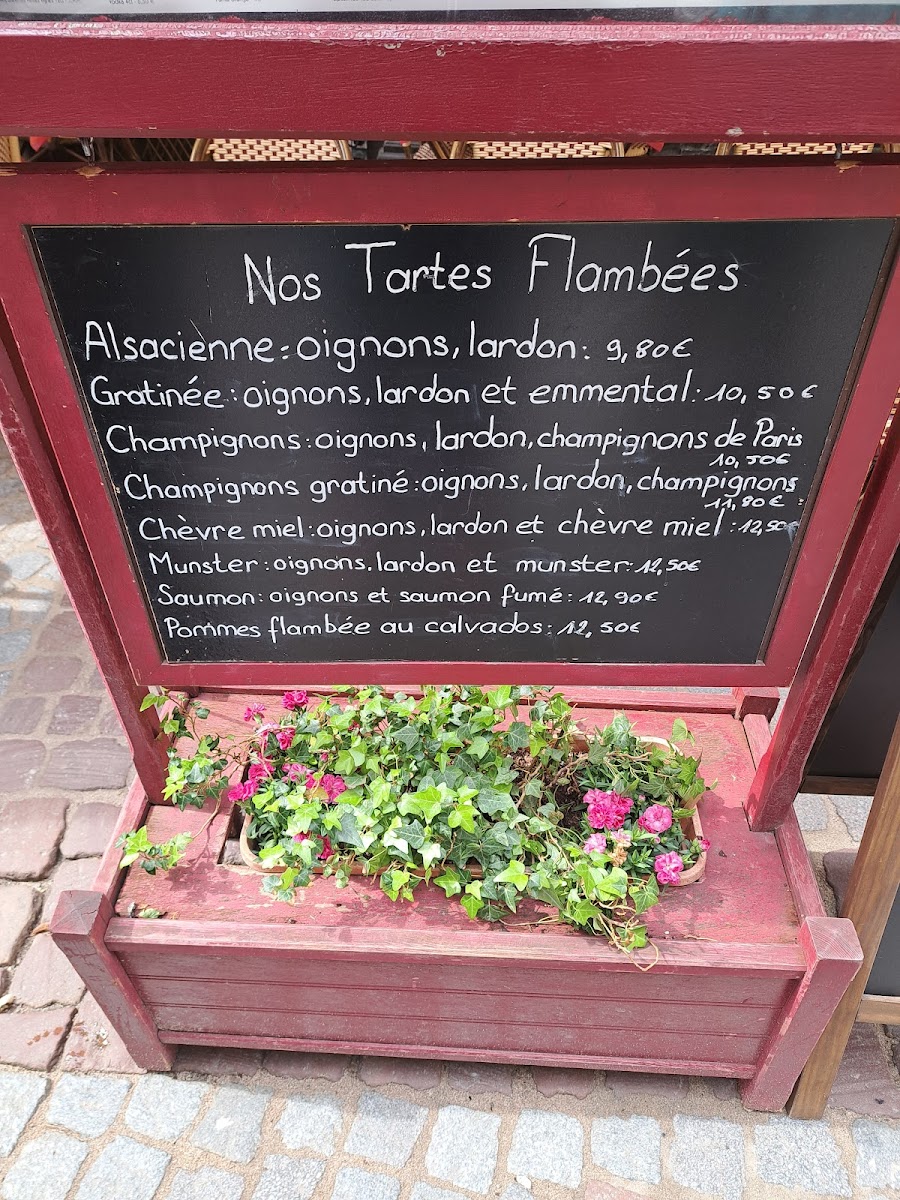 Nos Tartes Flambées
Alsacienne: oignons, lardon: 9,80€
Gratinée: oignons, lardon et emmental: 10,50€
Champignons: oignons, lardon, champignons de Paris
10,50€
Champignons gratiné: oignons, lardon, champignons
11,80€
Chèvre miel: oignons, lardon et chèvre miel: 12,50€
Munster: oignons, lardon et munster: 12,50€
Saumon: oignons et saumon fumé: 12,90€
Pommes flambée au calvados: 12,50€